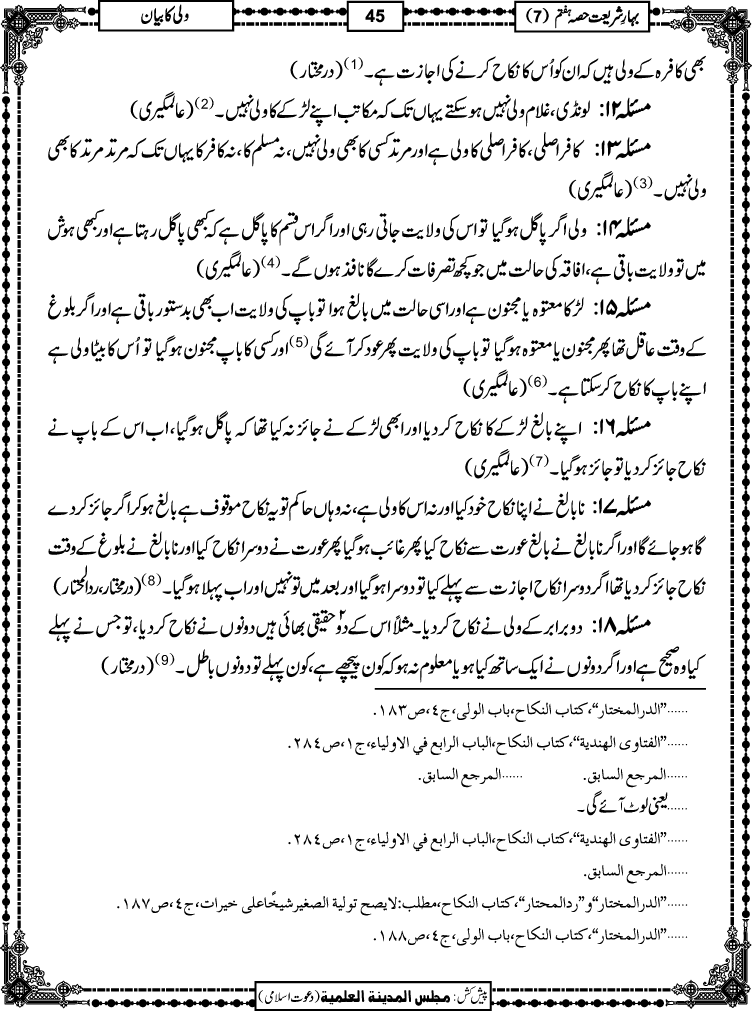 بہارِ شریعت حصہ ہفتم (7)
45
ولی کا بیان
بھی کافرہ کے ولی ہیں کہ ان کو اُس کا نکاح کرنے کی اجازت ہے۔(1) (درمختار)
مسئلہ ۱۲: لونڈی، غلام ولی نہیں ہو سکتے یہاں تک کہ مکاتب اپنے لڑکے کا ولی نہیں۔(2) (عالمگیری)
مسئلہ ۱۳: کافر اصلی، کافر اصلی کا ولی ہے اور مرتد کسی کا بھی ولی نہیں، نہ مسلم کا، نہ کافر کا یہاں تک کہ مرتد مرتد کا بھی
ولی نہیں۔(3) (عالمگیری)
مسئلہ ۱۴: ولی اگر پاگل ہوگیا تو اس کی ولایت جاتی رہی اور اگر اس قسم کا پاگل ہے کہ کبھی پاگل رہتا ہے اور کبھی ہوش
میں تو ولایت باقی ہے، افاقہ کی حالت میں جو کچھ تصرفات کرے گا نافذ ہوں گے۔(4) (عالمگیری)
مسئلہ ۱۵: لڑکا معتوہ یا مجنون ہے اور اسی حالت میں بالغ ہوا تو باپ کی ولایت اب بھی بدستور باقی ہے اور اگر بلوغ
کے وقت عاقل تھا پھر مجنون یا معتوہ ہوگیا تو باپ کی ولایت پھر عود کر آئے گی(5) اور کسی کا باپ مجنون ہوگیا تو اُس کا بیٹا ولی ہے
اپنے باپ کا نکاح کر سکتا ہے۔(6) (عالمگیری)
مسئلہ ۱۶: اپنے بالغ لڑکے کا نکاح کر دیا اور ابھی لڑکے نے جائز نہ کیا تھا کہ پاگل ہوگیا، اب اس کے باپ نے
نکاح جائز کر دیا تو جائز ہوگیا۔(7) (عالمگیری)
مسئلہ ۱۷: نابالغ نے اپنا نکاح خود کیا اور نہ اس کا ولی ہے، نہ وہاں حاکم تو یہ نکاح موقوف ہے بالغ ہو کر اگر جائز کر دے
گا ہو جائے گا اور اگر نابالغ نے بالغ عورت سے نکاح کیا پھر غائب ہوگیا پھر عورت نے دوسرا نکاح کیا اور نابالغ نے بلوغ کے وقت
نکاح جائز کر دیا تھا اگر دوسرا نکاح اجازت سے پہلے کیا تو دوسرا ہوگیا اور بعد میں تو نہیں اور اب پہلا ہوگیا۔(8) (درمختار، ردالمحتار)
مسئلہ ۱۸: دو برابر کے ولی نے نکاح کر دیا۔ مثلاً اس کے دو۲ حقیقی بھائی ہیں دونوں نے نکاح کر دیا، تو جس نے پہلے
کیا وہ صحیح ہے اور اگر دونوں نے ایک ساتھ کیا ہو یا معلوم نہ ہو کہ کون پیچھے ہے، کون پہلے تو دونوں باطل۔(9) (درمختار)
......”الدرالمختار“، کتاب النکاح، باب الولی، ج٤، ص١٨٣.
......”الفتاوی الھندیة“، کتاب النکاح، الباب الرابع في الاولیاء، ج١، ص٢٨٤.
......المرجع السابق. ......المرجع السابق.
......یعنی لوٹ آئے گی۔
......”الفتاوی الھندیة“، کتاب النکاح، الباب الرابع في الاولیاء، ج١، ص٢٨٤.
......المرجع السابق.
......”الدرالمختار“ و”ردالمحتار“، کتاب النکاح، مطلب: لایصح تولیة الصغیر شیخًا علی خیرات، ج٤، ص١٨٧.
......”الدرالمختار“، کتاب النکاح، باب الولی، ج٤، ص١٨٨.
پیش کش: مجلس المدینة العلمیة (دعوت اسلامی)